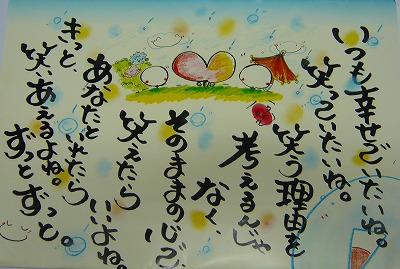 いつも幸せでいたいね。
笑っていたいね。
笑う理由を
考えるんじゃ
なく、
そのままのじぶんで
笑えたら
いいよね。
あなたといれたら
きっと、
笑いあえるよね。
ずっとずっと。